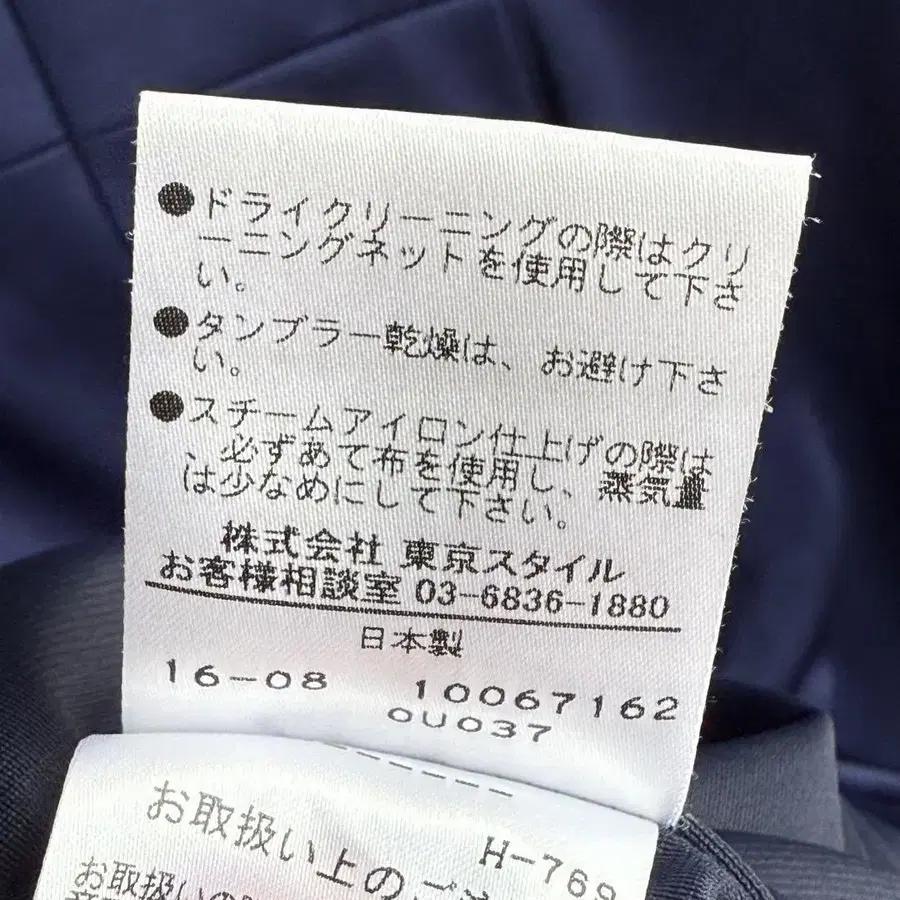 ●ドライクリーニングの際はクリ
ーニングネットを使用して下さ
い。
●タンブラー乾燥は、お避け下さ
い。
●スチームアイロン仕上げの際は
、必ずあて布を使用し、蒸気量
は少なめにして下さい。
株式会社 東京スタイル
お客様相談室 03-6836-1880
日本製
16-08 10067162
0U037
お取扱い上のご
H-769
お取扱いの